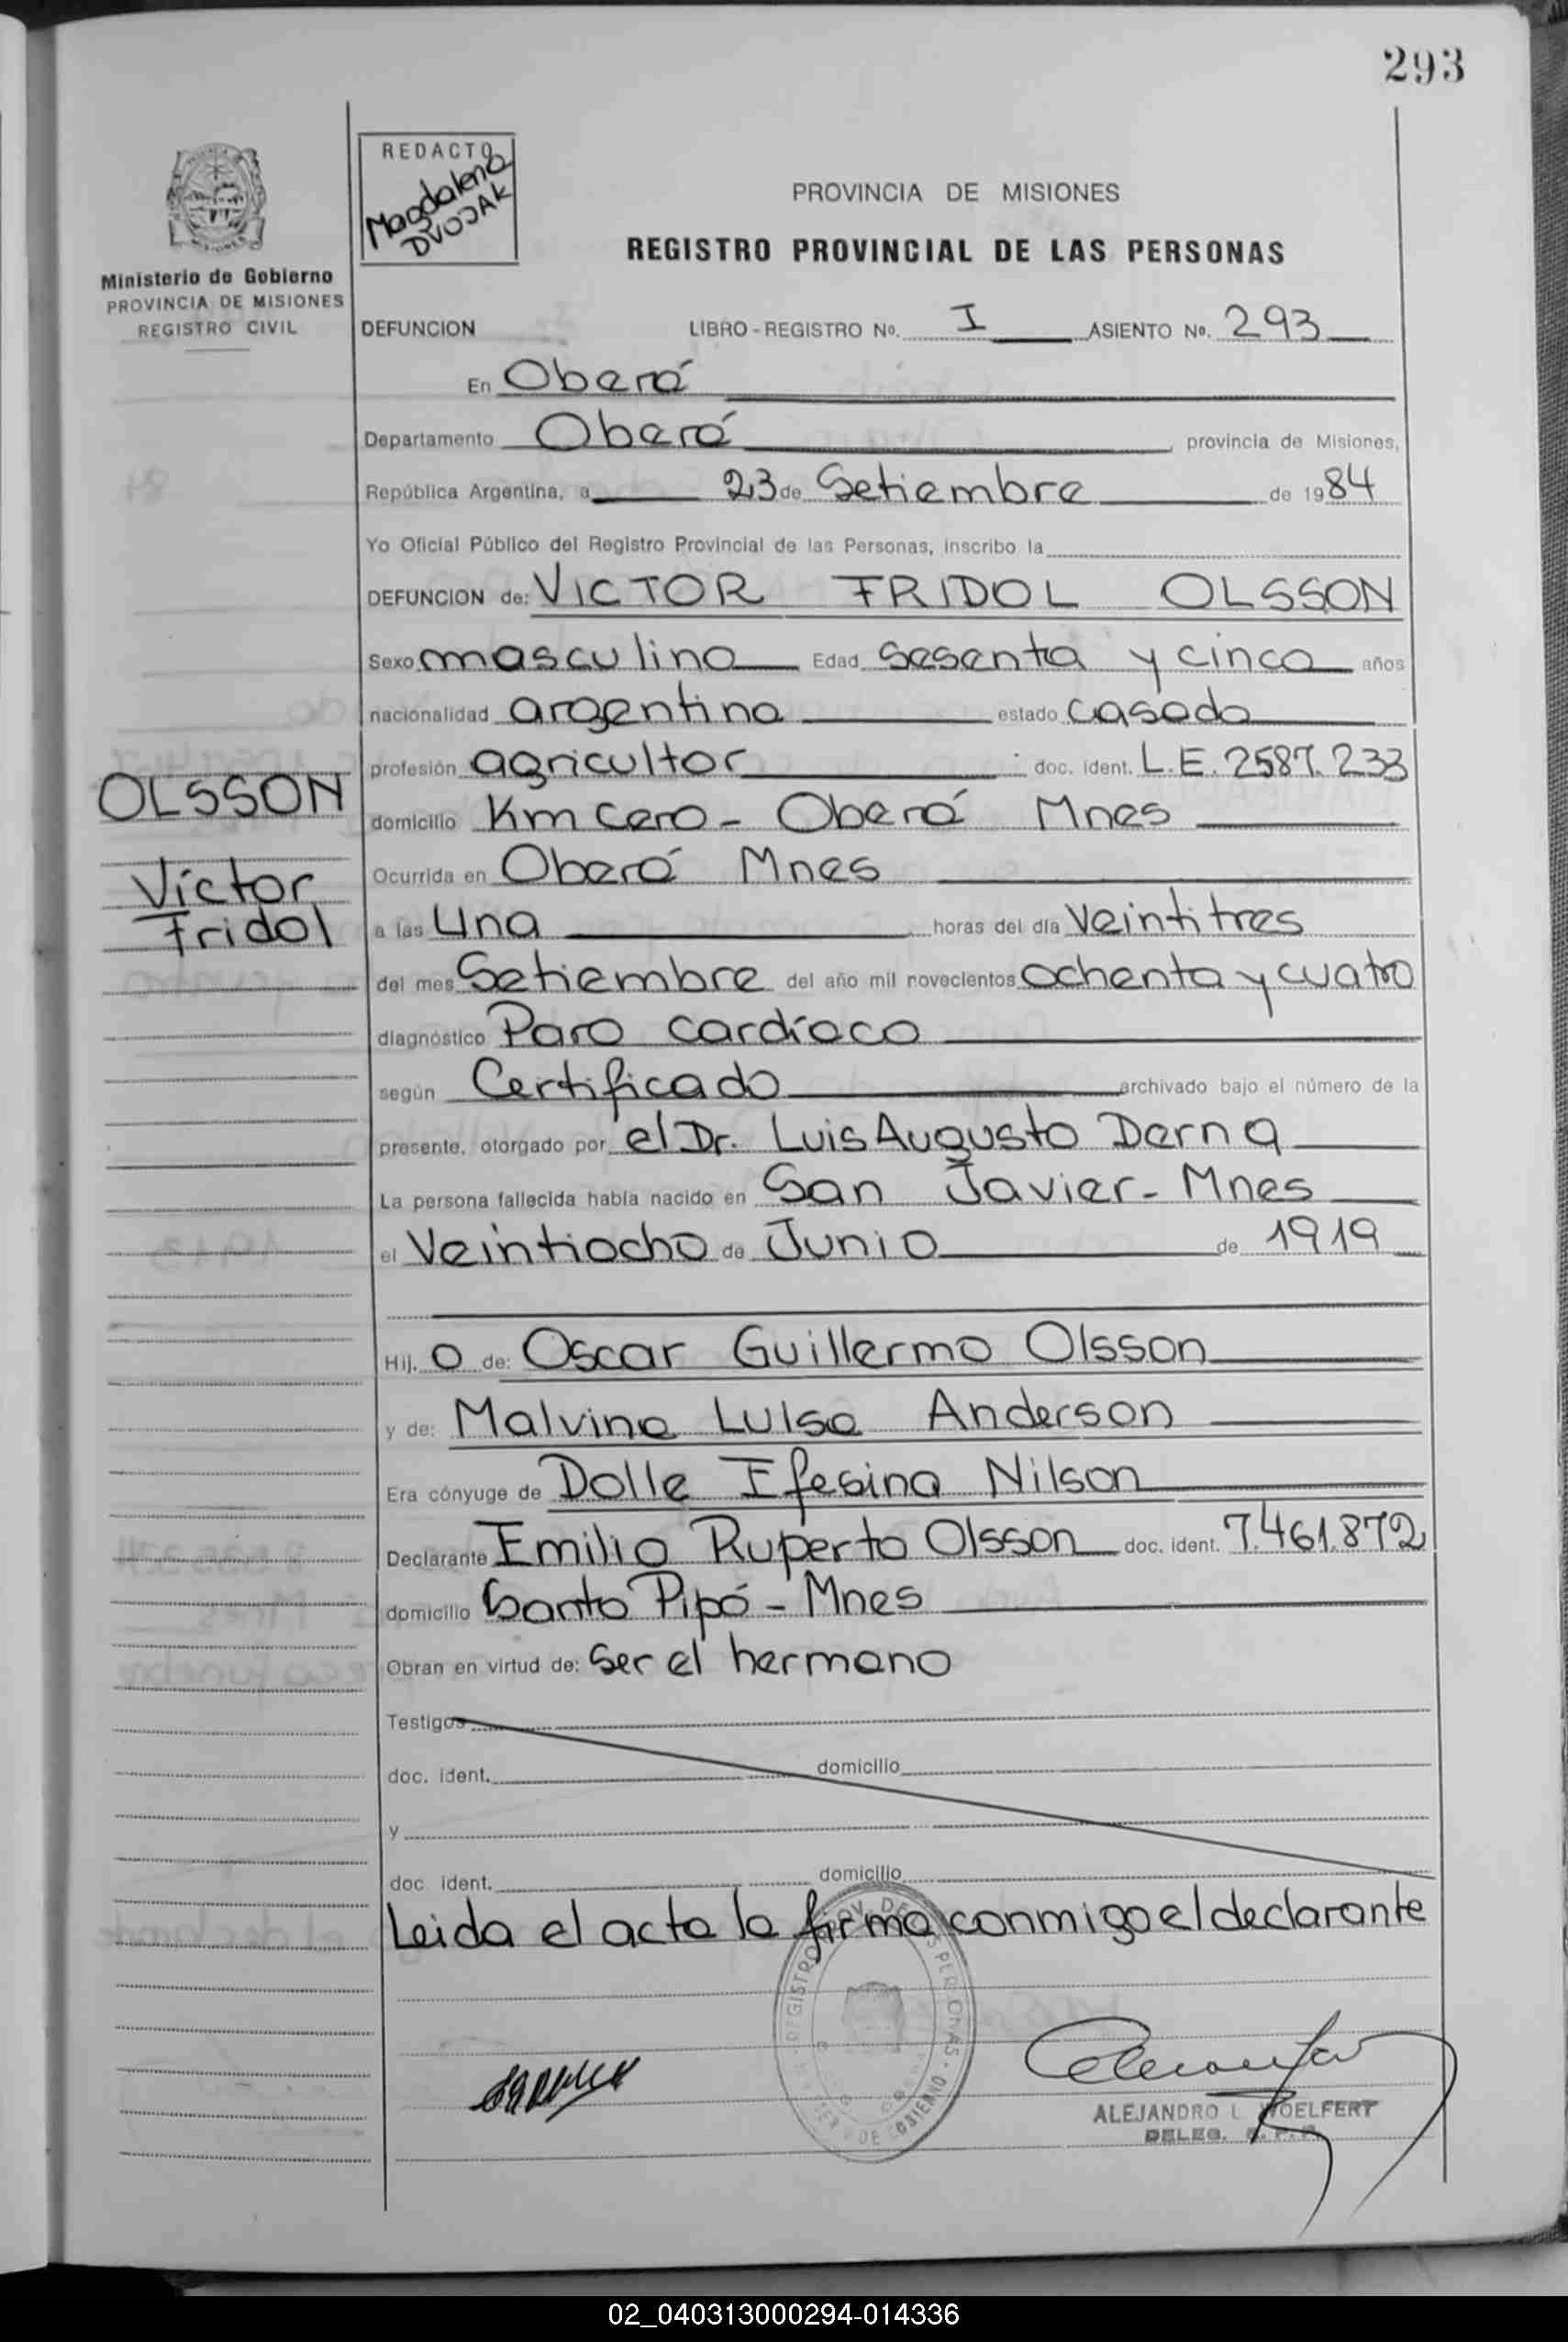 293
REDACTO
Magdalena
DVOJAK
PROVINCIA DE MISIONES
REGISTRO PROVINCIAL DE LAS PERSONAS
Ministerio de Gobierno
PROVINCIA DE MISIONES
REGISTRO CIVIL
DEFUNCION LIBRO - REGISTRO No. I ASIENTO No. 293
En Oberá
Departamento Oberá, provincia de Misiones,
República Argentina, a 23 de Setiembre de 1984
Yo Oficial Público del Registro Provincial de las Personas, inscribo la
DEFUNCION de: VICTOR FRIDOL OLSSON
Sexo masculino Edad sesenta y cinco años
nacionalidad argentina estado casado
profesión agricultor doc. ident. L.E. 2587.233
OLSSON
Víctor
Fridol
domicilio Km cero - Oberá Mnes
Ocurrida en Oberá Mnes
a las una horas del día veintitres
del mes Setiembre del año mil novecientos ochenta y cuatro
diagnóstico Paro cardíaco
según Certificado archivado bajo el número de la
presente, otorgado por el Dr. Luis Augusto Derna
La persona fallecida había nacido en San Javier - Mnes
el Veintiocho de Junio de 1919
Hij o de: Oscar Guillermo Olsson
y de: Malvina Luisa Anderson
Era cónyuge de Dolle Efesina Nilson
Declarante Emilio Ruperto Olsson doc. ident. 7.461.872
domicilio Santo Pipó - Mnes
Obran en virtud de: ser el hermano
Testigos
doc. ident. domicilio
y
doc. ident. domicilio
Leida el acta la firma conmigo el declarante
ALEJANDRO L. WOELFERT
DELEG. R. P. P.
02_040313000294-014336